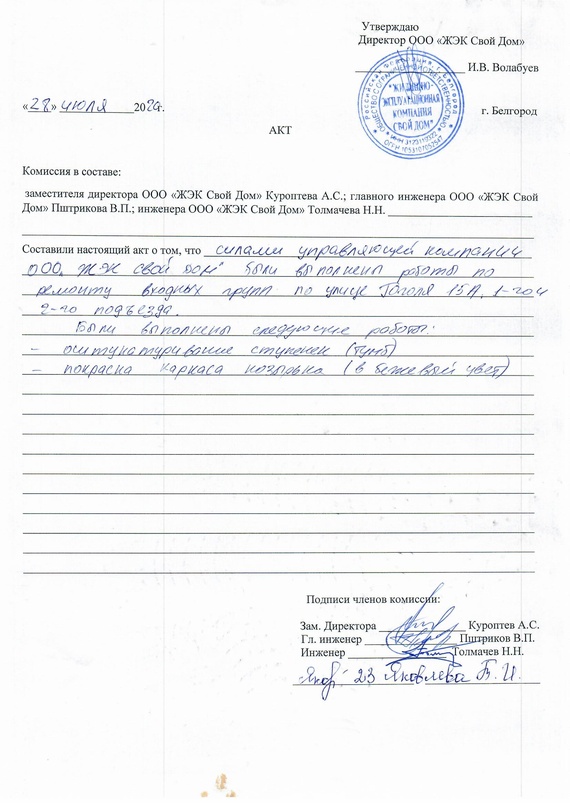 Утверждаю
Директор ООО «ЖЭК Свой Дом»
И.В. Волабуев
Российская Федерация, г. Белгород
ОБЩЕСТВО С ОГРАНИЧЕННОЙ ОТВЕТСТВЕННОСТЬЮ
"ЖИЛИЩНО-
ЭКСПЛУАТАЦИОННАЯ
КОМПАНИЯ
СВОЙ ДОМ"
«28» июля 2020г.
г. Белгород
АКТ
Комиссия в составе:
заместителя директора ООО «ЖЭК Свой Дом» Куроптева А.С.; главного инженера ООО «ЖЭК
Свой Дом» Пштрикова В.П.; инженера ООО «ЖЭК Свой Дом» Толмачева Н.Н.
Составили настоящий акт о том, что силами управляющей компании
ООО "ЖЭК Свой дом" были выполнены работы по
ремонту входных групп по улице Гоголя 15А, 1-го и
2-го подъезда.
Были выполнены следующие работы:
- оштукатуривание ступенек
- покраска каркаса козырька (в бежевый цвет)
Подписи членов комиссии:
Зам. Директора Куроптев А.С.
Гл. инженер Пштриков В.П.
Инженер Толмачев Н.Н.
23 Яковлева Т. И.